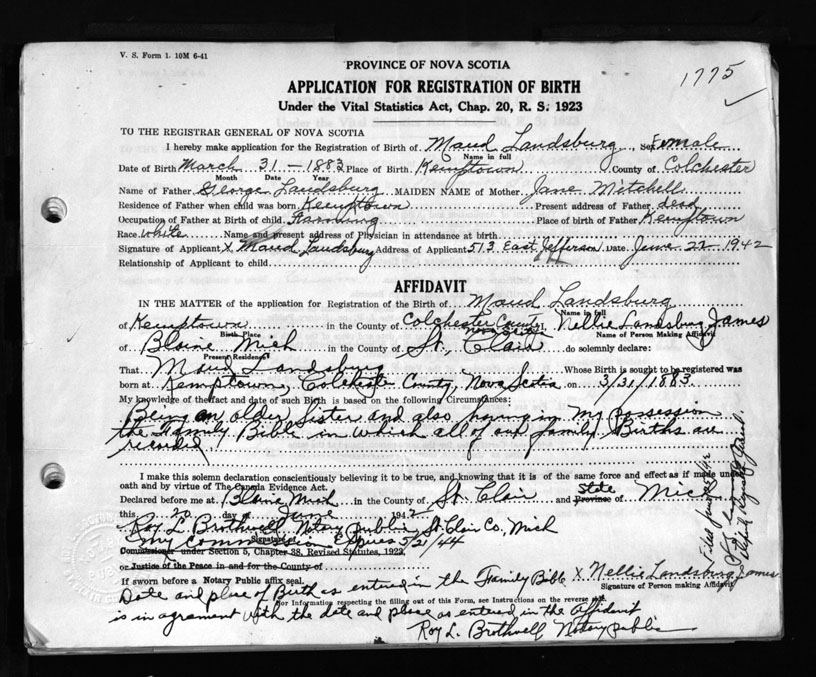 V. S. Form 1. 10M 6-41
PROVINCE OF NOVA SCOTIA
1775
APPLICATION FOR REGISTRATION OF BIRTH
Under the Vital Statistics Act, Chap. 20, R. S. 1923
TO THE REGISTRAR GENERAL OF NOVA SCOTIA
I hereby make application for the Registration of Birth of Maud Landsburg, Sex Female
Name in full
Date of Birth March 31 - 1883 Place of Birth Kemptown County of Colchester
Month Date Year
Name of Father George Landsburg MAIDEN NAME of Mother Jane Mitchell
Residence of Father when child was born Kemptown Present address of Father dead
Occupation of Father at Birth of child Farming Place of birth of Father Kemptown
Race white Name and present address of Physician in attendance at Birth
Signature of Applicant x Maud Landsburg Address of Applicant 513 East Jefferson Date June 22 1942
Relationship of Applicant to child
AFFIDAVIT
IN THE MATTER of the application for Registration of the Birth of Maud Landsburg
Name in full
of Kemptown in the County of Colchester County Nova Scotia I, Nellie Landsburg James
Birth Place Name of Person Making Affidavit
of Blaine Mich in the County of St. Clair do solemnly declare:
Present Residence
That Maud Landsburg Whose Birth is sought to be registered was
born at Kemptown, Colchester County, Nova Scotia on 3/31/1883
My knowledge of the fact and date of such Birth is based on the following Circumstances:
Being an older Sister and also having in my possession
the Family Bible in which all of our family Births are
recorded
I make this solemn declaration conscientiously believing it to be true, and knowing that it is of the same force and effect as if made under
oath and by virtue of The Canada Evidence Act.
Declared before me at Blaine Mich in the County of St. Clair and State Province of Mich
this 20 day of June 1942
Roy L. Brothwell Notary public St. Clair Co., Mich
Signature of
My Commission Expires 5/21/44
Commissioner under Section 5, Chapter 38, Revised Statutes, 1923
or Justice of the Peace in and for the County of
If sworn before a Notary Public affix seal.
x Nellie Landsburg James
Signature of Person making Affidavit
Date and place of Birth as entered in the Family Bible
For Information respecting the filling out of this Form, see Instructions on the reverse
is in agrament with the date and place as entered in the affidavit
Roy L. Brothwell Notary public